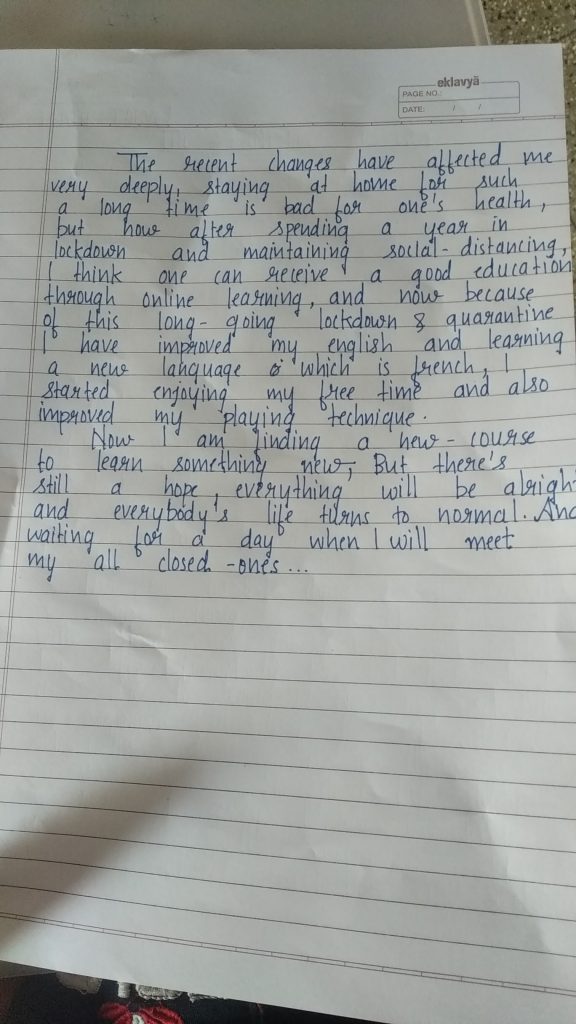 eklavyä
PAGE NO.:
DATE: / /
The recent changes have affected me
very deeply, staying at home for such
a long time is bad for one's health,
but now after spending a year in
lockdown and maintaining social-distancing,
I think one can receive a good education
through online learning, and now because
of this long-going lockdown & quarantine
I have improved my english and learning
a new language which is french, I
started enjoying my free time and also
improved my playing technique.
Now I am finding a new-course
to learn something new, But there's
still a hope, everything will be alright
and everybody's life turns to normal. And
waiting for a day when I will meet
my all closed-ones...